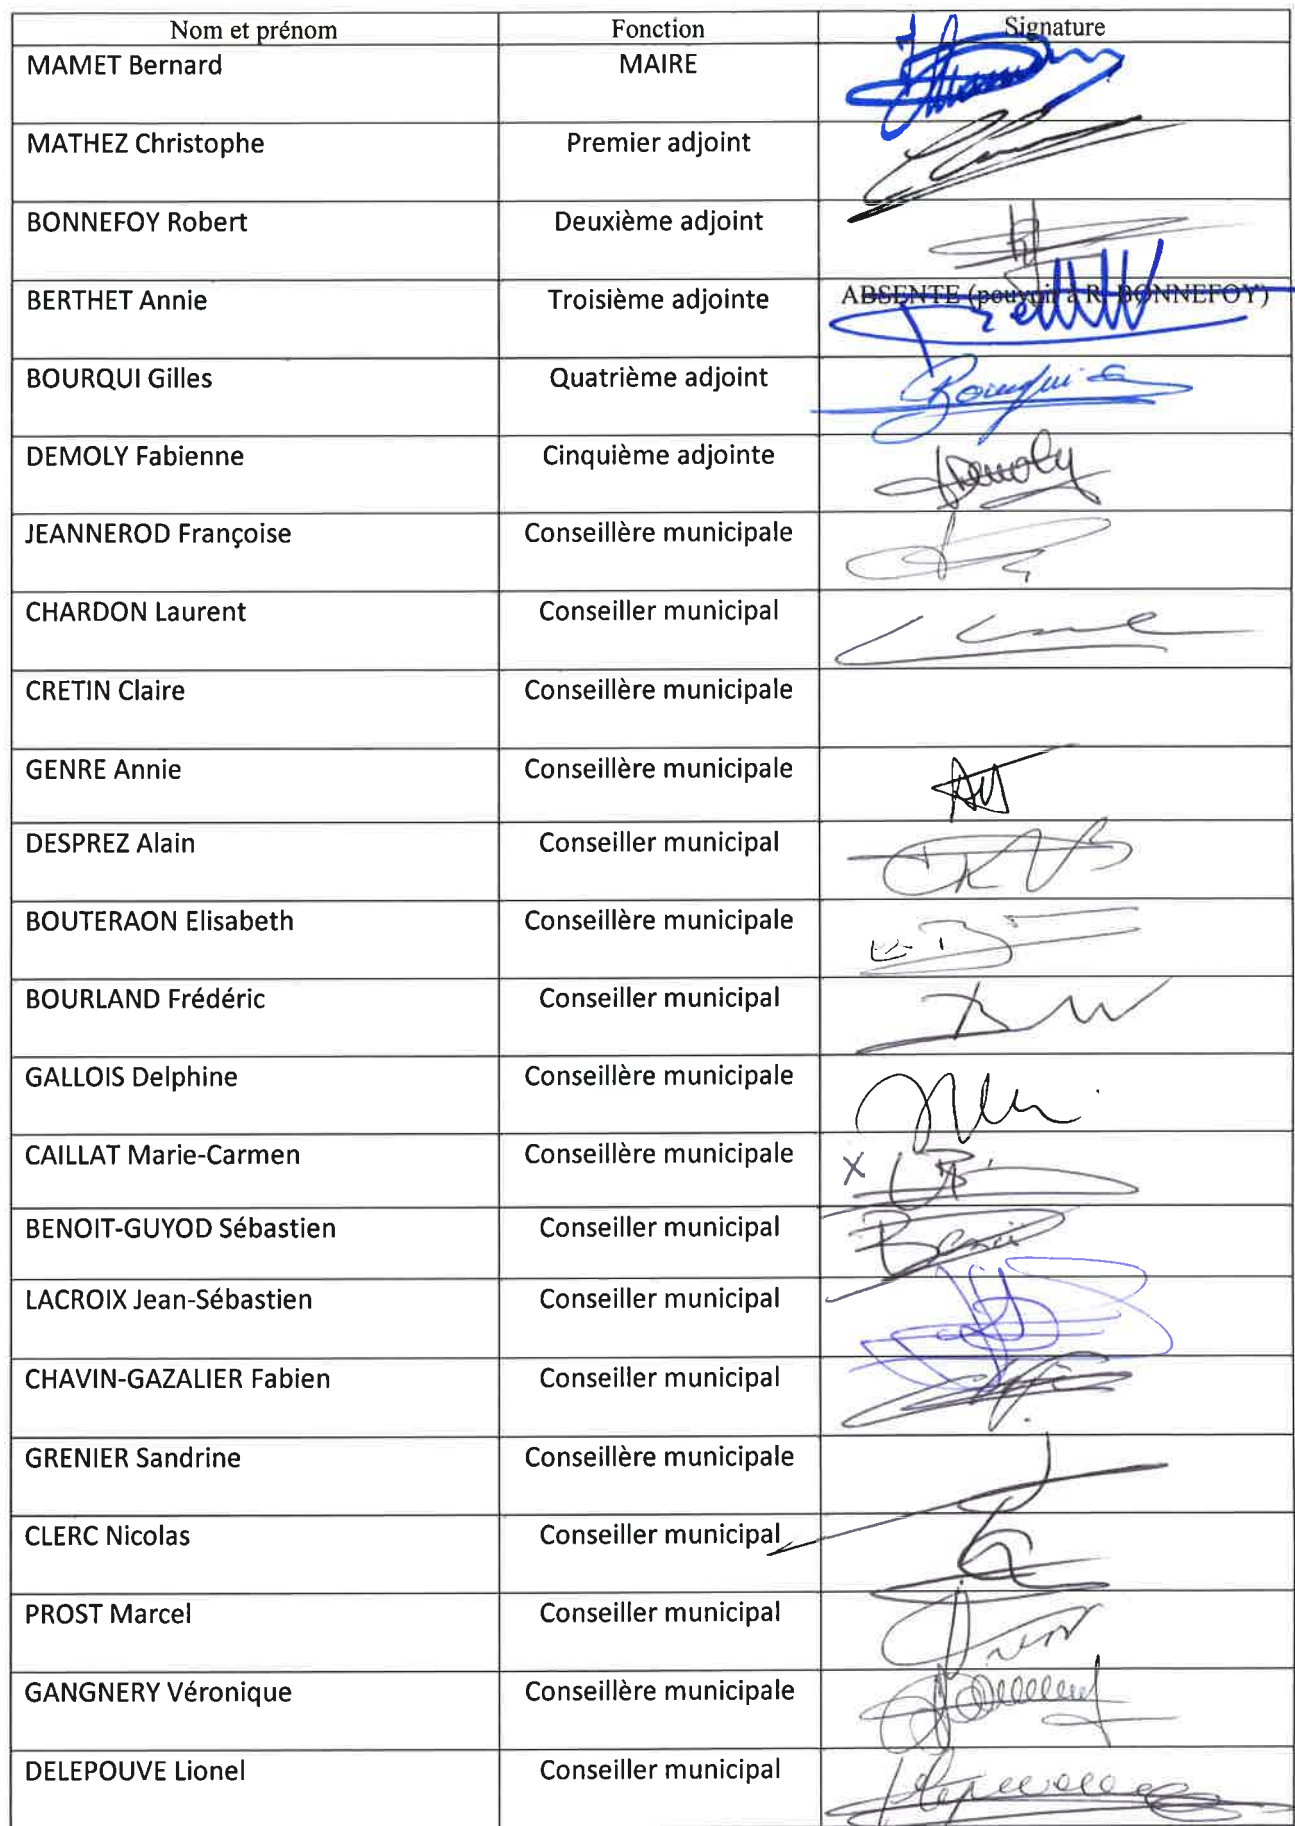 Nom et prénom Fonction Signature
MAMET Bernard MAIRE
MATHEZ Christophe Premier adjoint
BONNEFOY Robert Deuxième adjoint
BERTHET Annie Troisième adjointe ABSENTE (pouvoir à R. BONNEFOY)
BOURQUI Gilles Quatrième adjoint Bourqui G
DEMOLY Fabienne Cinquième adjointe Demoly
JEANNEROD Françoise Conseillère municipale
CHARDON Laurent Conseiller municipal
CRETIN Claire Conseillère municipale
GENRE Annie Conseillère municipale
DESPREZ Alain Conseiller municipal
BOUTERAON Elisabeth Conseillère municipale
BOURLAND Frédéric Conseiller municipal
GALLOIS Delphine Conseillère municipale
CAILLAT Marie-Carmen Conseillère municipale X
BENOIT-GUYOD Sébastien Conseiller municipal
LACROIX Jean-Sébastien Conseiller municipal
CHAVIN-GAZALIER Fabien Conseiller municipal
GRENIER Sandrine Conseillère municipale
CLERC Nicolas Conseiller municipal
PROST Marcel Conseiller municipal
GANGNERY Véronique Conseillère municipale
DELEPOUVE Lionel Conseiller municipal